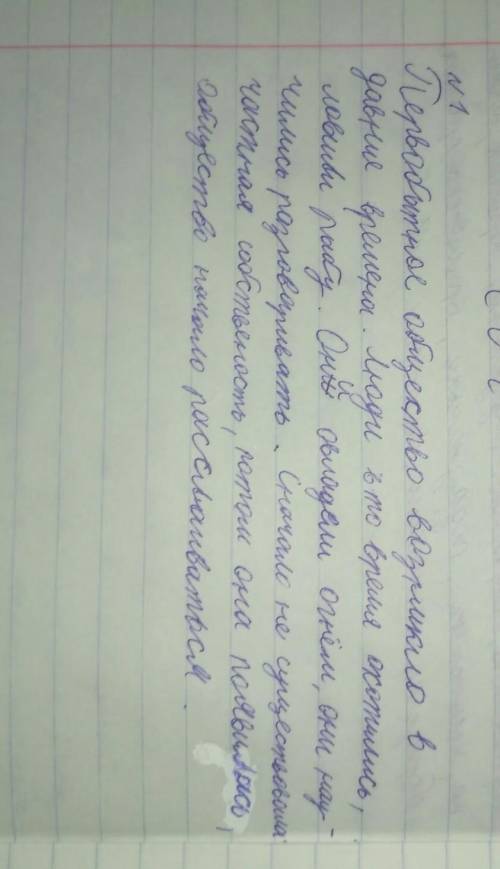 №1
Первобытное общество возникло в
давние времена. Люди в то время охотились,
ловили рыбу. Они овладели огнём, они нау-
чились разговаривать. Сначала не существовала
частная собственость, потом она появилась,
общество начало расслаиваться.